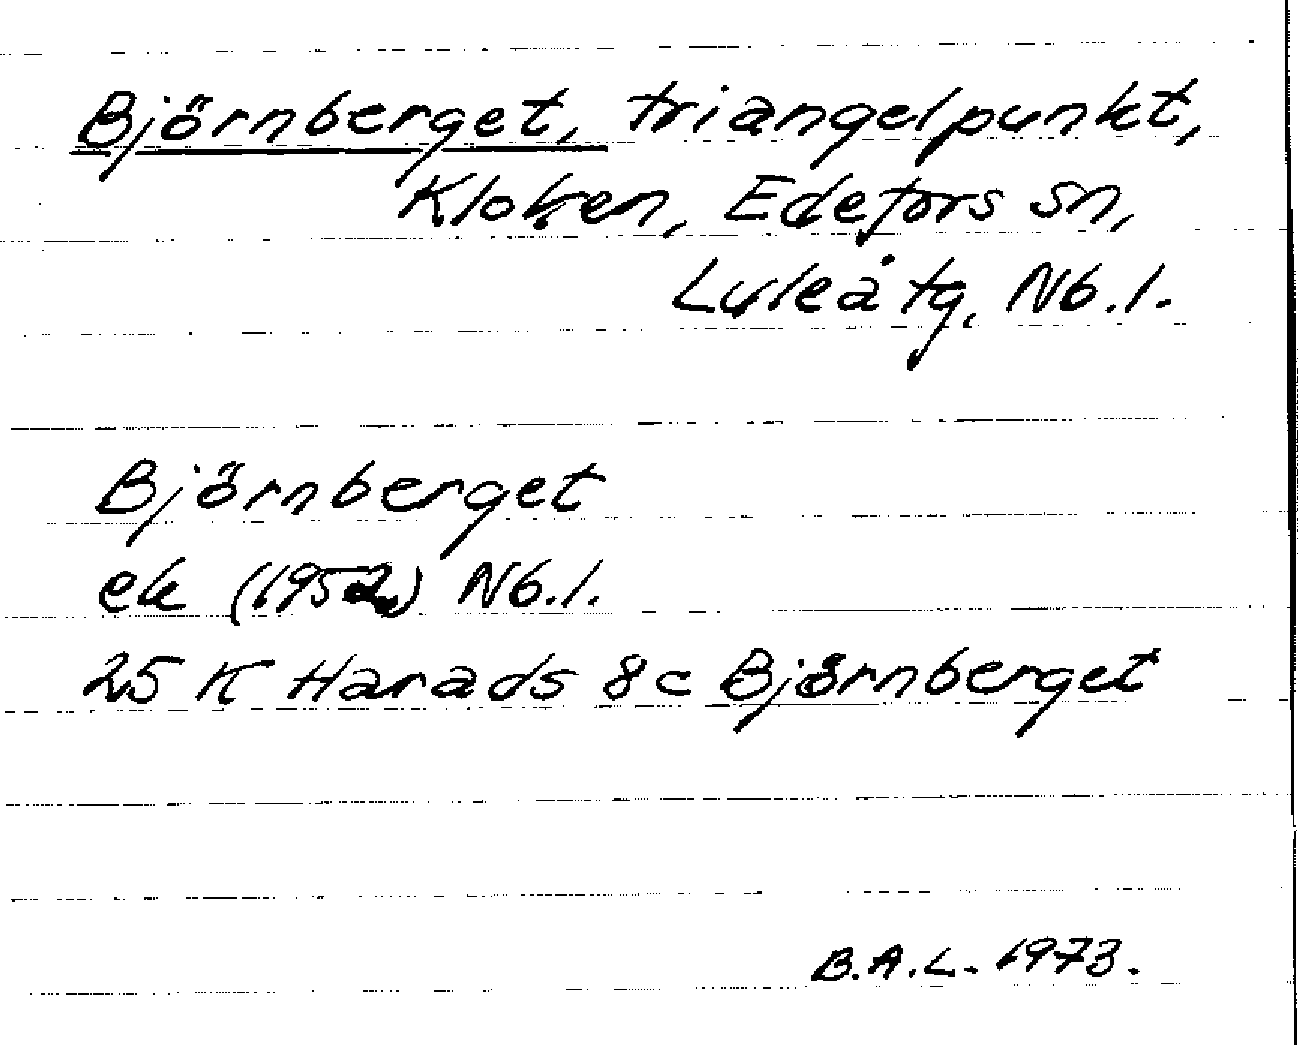 Björnberget, triangelpunkt,
Kloken, Edefors sn,
Luleå tg, Nb.l.
Björnberget
ek (1952) Nb.l.
25 K Harads 8c Björnberget
B.A.L. 1973.